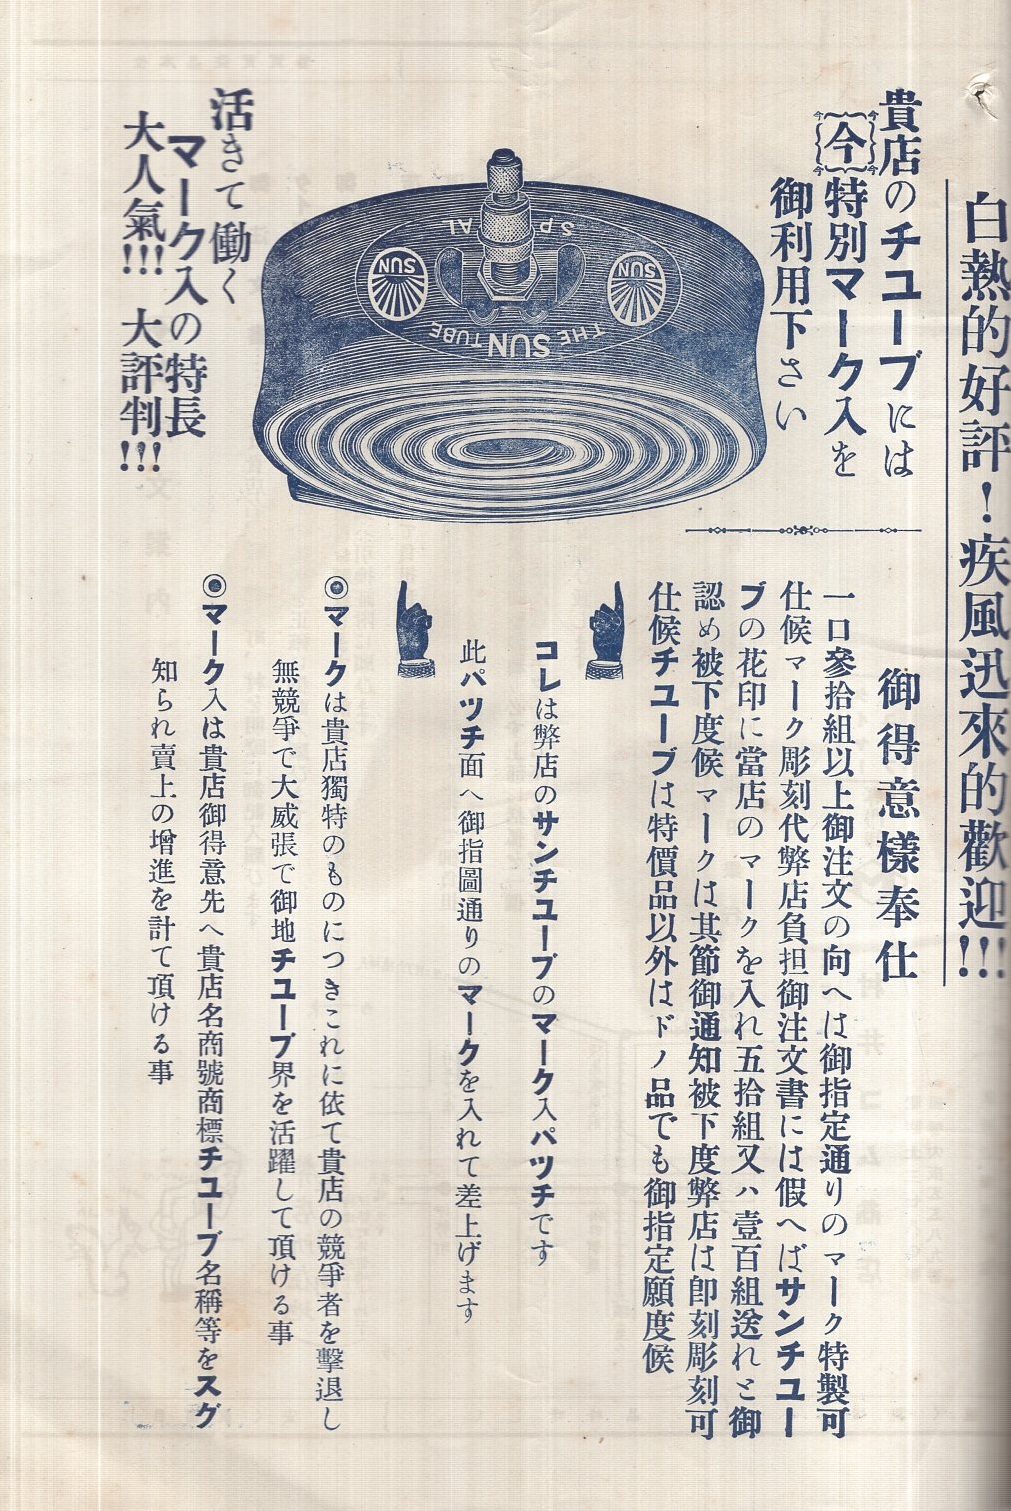 白熱的好評！疾風迅來的歡迎!!!
貴店のチユーブには
今特別マーク入を
御利用下さい
SPECIAL
SUN
SUN
THE SUN TUBE
活きて働く
マーク入の特長
大人氣!!! 大評判!!!
御得意樣奉仕
一口參拾組以上御注文の向へは御指定通りのマーク特製可
仕候マーク彫刻代弊店負担御注文書には假へばサンチユー
ブの花印に當店のマークを入れ五拾組又ハ壹百組送れと御
認め被下度候マークは其節御通知被下度弊店は卽刻彫刻可
仕候チユーブは特價品以外はドノ品でも御指定願度候
コレは弊店のサンチユーブのマーク入パツチです
此パツチ面へ御指圖通りのマークを入れて差上げます
◉マークは貴店獨特のものにつきこれに依て貴店の競爭者を擊退し
無競爭で大威張で御地チユーブ界を活躍して頂ける事
◉マーク入は貴店御得意先へ貴店名商號商標チユーブ名稱等をスグ
知られ賣上の增進を計て頂ける事